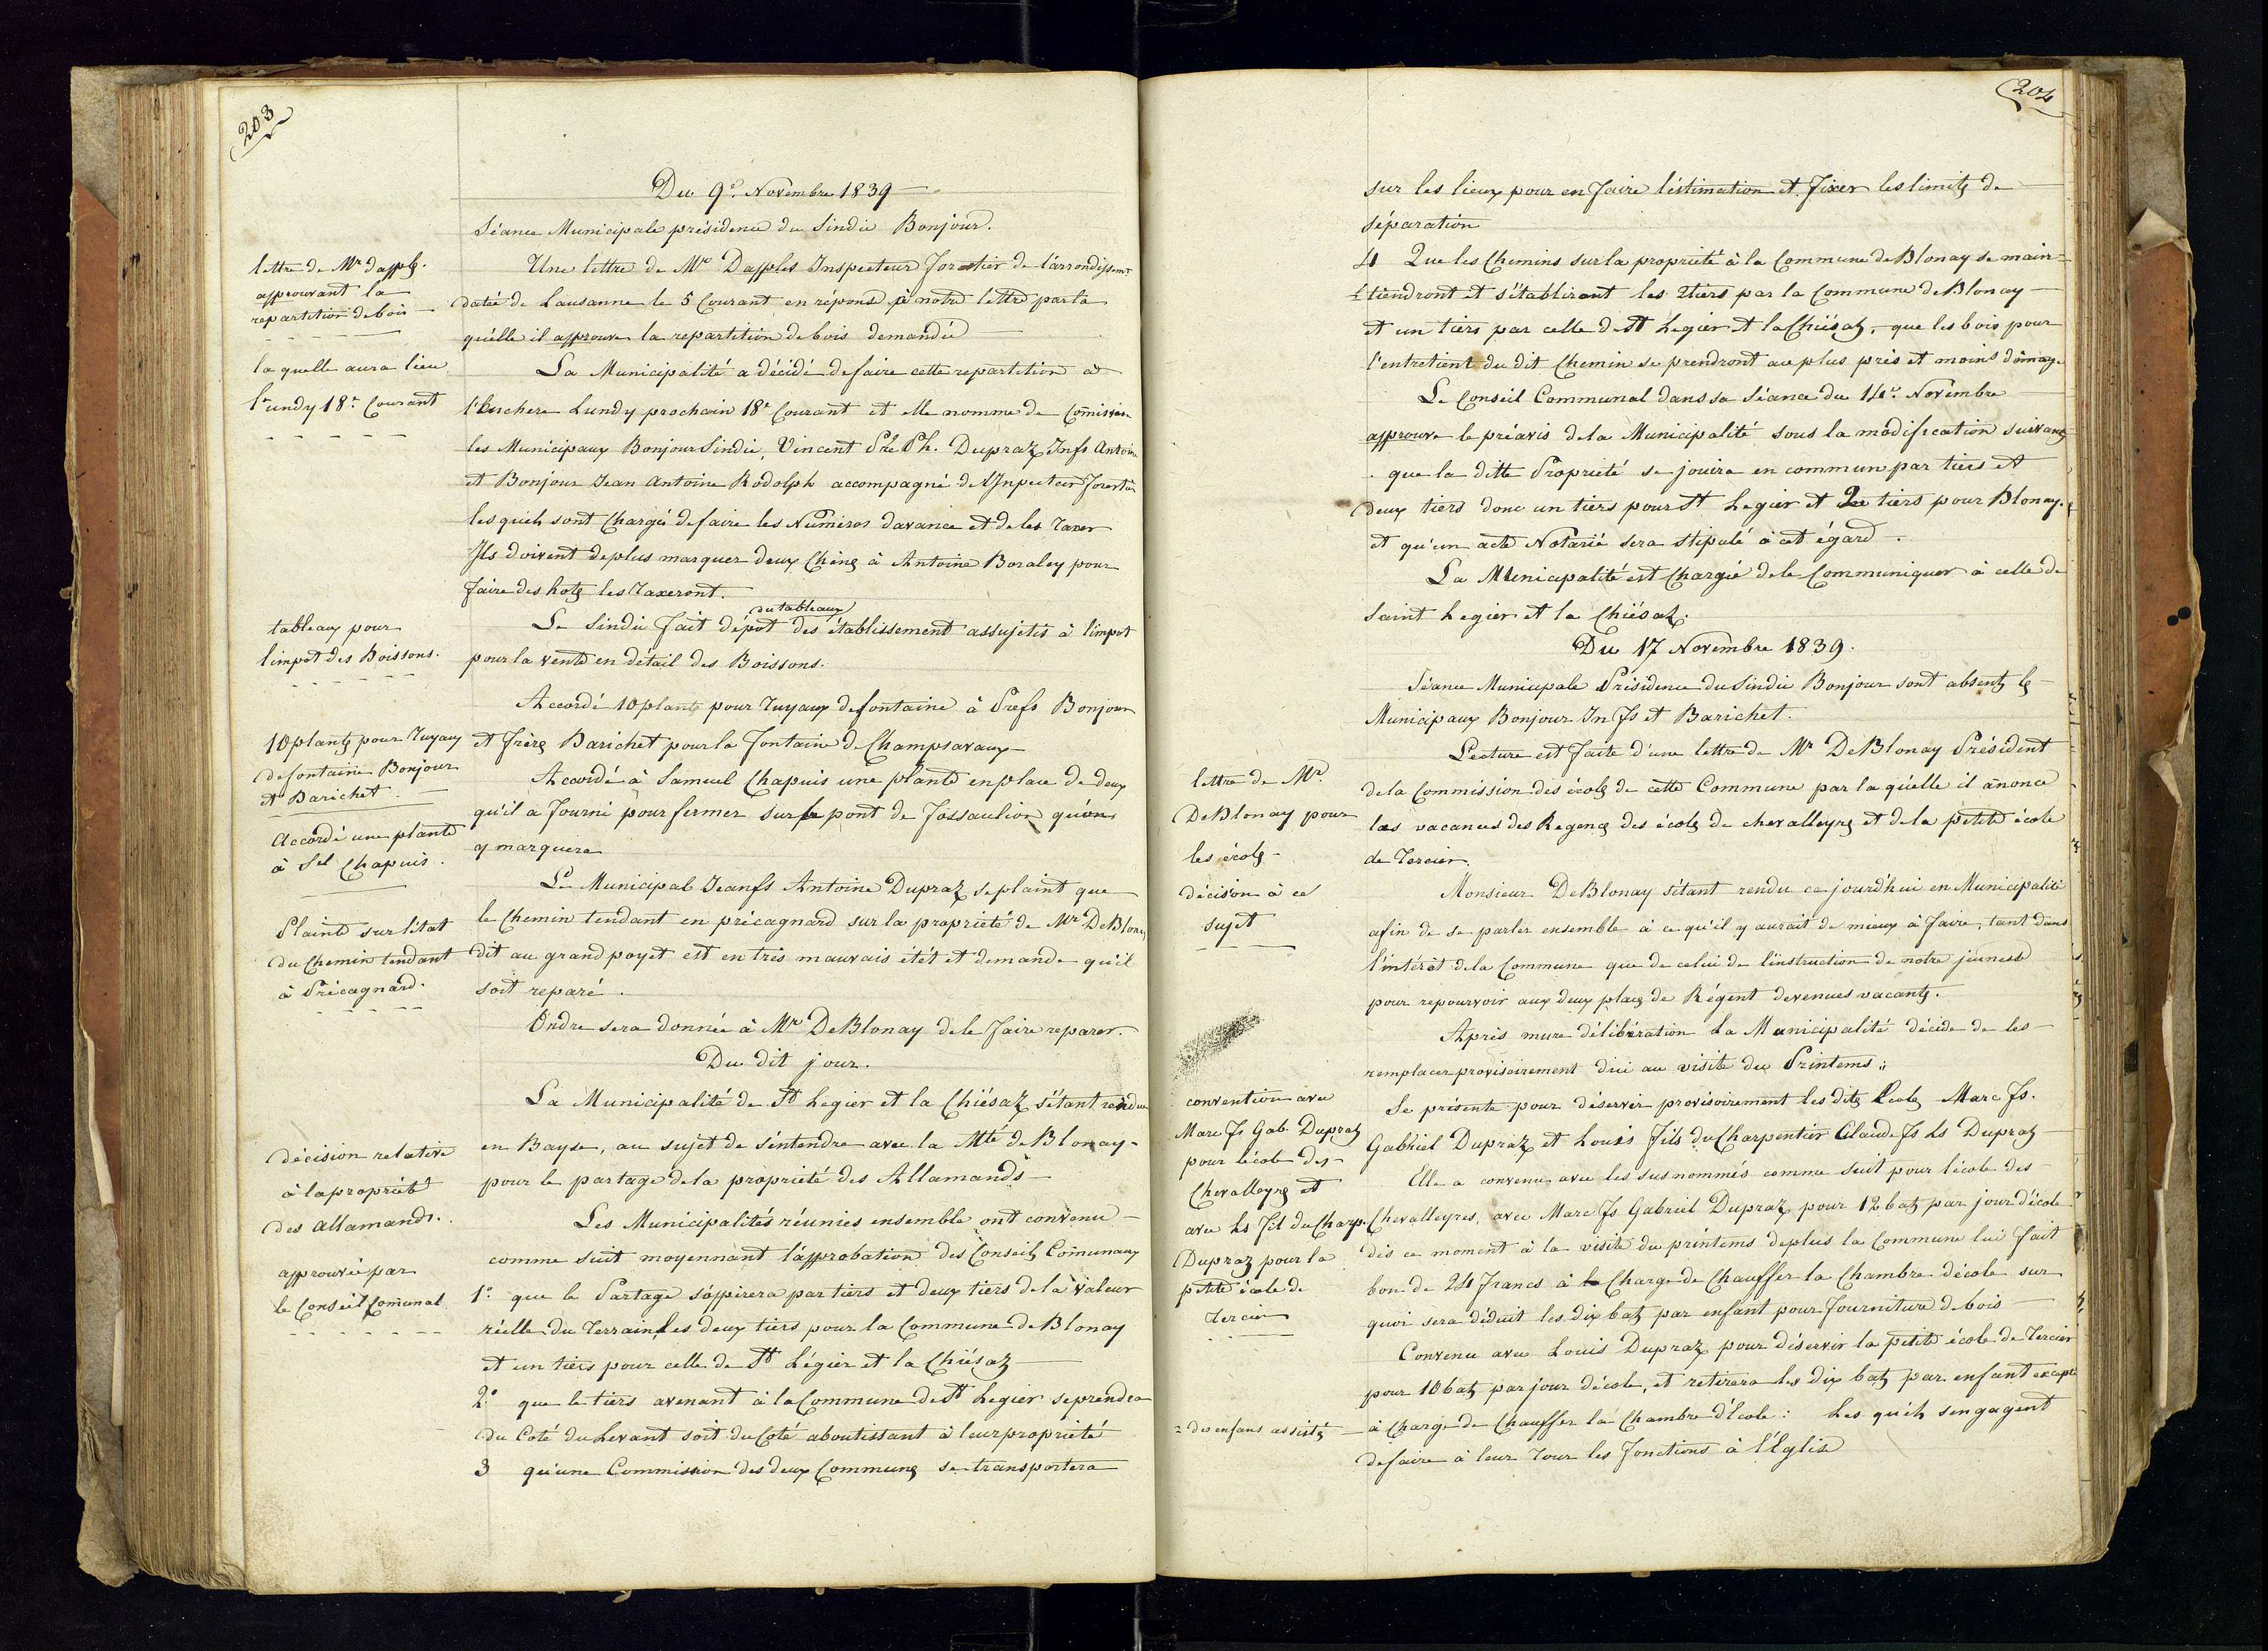 203
Du 9e. Novembre 1839
Séance Municipale présidence du Sindic Bonjour.
lettre de Mr dapples.
approuvant la
repartition de bois
Une lettre de Mr Dapples Inspecteur forestier de l'arrondissemt
datée de Lausanne le 5 Courant en réponse à notre lettre par la
quélle il approuve la repartition de bois demandée
la quelle aura lieu
lundy 18e Courant
La Municipalité a décidé de faire cette repartition à
l'Enchere Lundy prochain 18e Courant et elle nomme de Comission
les Municipaux Bonjour Sindic, Vincent Pre Ph. Dupraz Jnfs Antoine
et Bonjour Jean Antoine Rodolph accompagné de l'Inpecteur forestier
les quels sont Chargé de faire les Numéros davance et de les Taxer
Ils doivent de plus marquer deux Chênes à Antoine Boraley pour
faire des hotes les Taxeront.
tableau pour
l'impôt des Boissons.
Le Sindic fait dépot des du tableaux établissement assujetis à l'impot
pour la vente en détail des Boissons.
10 plantes pour Tuyaux
de fontaine Bonjour
et Barichet
Accordé 10 plantes pour Tuyaux de fontaine à Prefs Bonjour
et frères Barichet pour la fontaine de Champsavaux
Accordé une plante
à Sel Chapuis.
Accordé à Samuel Chapuis une plante en place de deux
qu'il a fourni pour fermer sur le pont de Fossaulion qu'on
y marquera
Plainte sur l'état
du Chemin tendant
à Précagnard.
Le Municipal Jeanfs Antoine Dupraz se plaint que
le Chemin tendant en précagnard sur la proprieté de Mr DeBlonay
dit au grand poyet est en très mauvais étét et demande qu'il
soit reparé.
Ordre sera donnée à Mr DeBlonay de le faire reparer.
Du dit jour.
décision relative
à la proprièté
des allamands.
La Municipalité de St Legier et la Chiésaz s'étant rendue
en Bayse, au sujet de s'éntendre avec la Mté de Blonay
pour le partage de la proprieté des Allamands
approuvée par
le Conseil Comunal
Les Municipalités réunies ensemble ont convenu
comme suit moyennant l'approbation des Conseils Comunaux
1o. que le Partage s'oppirera par tiers et deux tiers de la valeur
réelle du Terrain, les deux tiers pour la Commune de Blonay
et un tiers pour celle de St Légier et la Chiésaz
2o. que le tiers avenant à la Commune de St Legier se prendra
du Coté du Levant soit du Coté aboutissant à leur proprieté
3 qu'une Commission des deux Communes se transportera
204
sur les lieux pour en faire l'éstimation et fixer les limites de
séparation
4 Que les Chemins sur la proprieté à la Commune de Blonay se main=
=tiendront et s'établiront les 2 tiers par la Commune de Blonay
et un tiers par celle de St Legier et la Chiésaz, que les bois pour
l'entretient du dit Chemin se prendront au plus près et moins domage
Le Conseil Communal dans sa Séance du 14e. Novembre
approuve le préavis de la Municipalité sous la modification suivante
que la ditte Proprieté se jouira en commun par tiers et
deux tiers donc un tiers pour St Legier et 2 tiers pour Blonay.
et qu'un acte Notarié sera stipulé à cet égard.
La Municipalité est Chargée de le Communiquer à celle de
Saint Legier et la Chiésaz.
Du 17 Novembre 1839.
Séance Municipale Présidence du Sindic Bonjour sont absents les
Municipaux Bonjour Jn Fs et Barichet.
lettre de Mr.
DeBlonay pour
les écoles
décision à ce
sujet
Lecture est faite d'une lettre de Mr DeBlonay Président
de la Commission des écoles de cette Commune par la qu'élle il anonce
les vacances des Regences des écoles de chevalleyres et de la petite école
de Tercier.
Monsieur DeBlonay s'étant rendu ce jourd'hui en Municipalité
afin de se parler ensemble à ce qu'il y aurait de mieux à faire, tant dans
l'intérêt de la Commune que de celui de l'instruction de notre jeunesse
pour repourvoir aux deux places de Régent devenues vacantes.
Après mure délibération La Municipalité décide de les
remplacer provisoirement d'ici au visite du Printems
convention avec
Marc Fs Gab. Dupraz
pour l'école des
Chevalleyres et
avec Ls fil du Charp.
Dupraz pour la
petite école de
Tercier
Se présente pour déservir provisoirement les dites Ecoles Marc Fs.
Gabriel Dupraz et Louis fils du Charpentier Claude Fs Ls Dupraz
Elle a convenu avec les susnommés comme suit pour l'école des
Chevalleyres, avec Marc Fs Gabriel Dupraz pour 12 batz par jour d'école
dès ce moment à la visite du printems de plus la Commune lui fait
bon de 24 francs à la Charge de Chauffer la Chambre d'école sur
quoi sera déduit les dix batz par enfant pour fourniture de bois
Convenu avec Louis Dupraz pour déservir la petite école de Tercier
pour 10 batz par jour d'école, et retirera les dix batz par enfant excepté
= des enfans assistés
à Charge de Chauffer la Chambre d'Ecole: Les quels sengagent
de faire à leur Tour les fonctions à l'Eglise